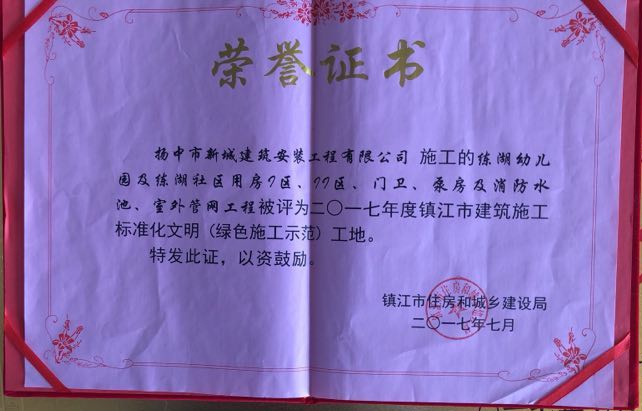 荣誉证书
扬中市新城建筑安装工程有限公司 施工的练湖幼儿
园及练湖社区用房7区、77区、门卫、泵房及消防水
池、室外管网工程被评为二〇一七年度镇江市建筑施工
标准化文明(绿色施工示范)工地。
特发此证，以资鼓励。
镇江市住房和城乡建设局
二〇一七年七月